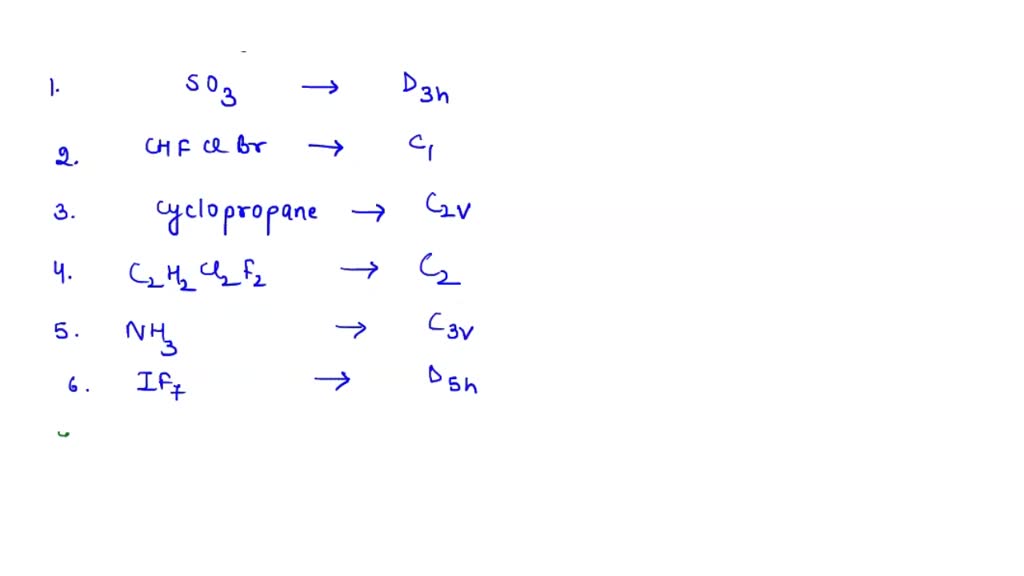 1. SO3 → D3h
2. CHFClBr → C1
3. cyclopropane → C2v
4. C2H2Cl2F2 → C2
5. NH3 → C3v
6. IF7 → D5h